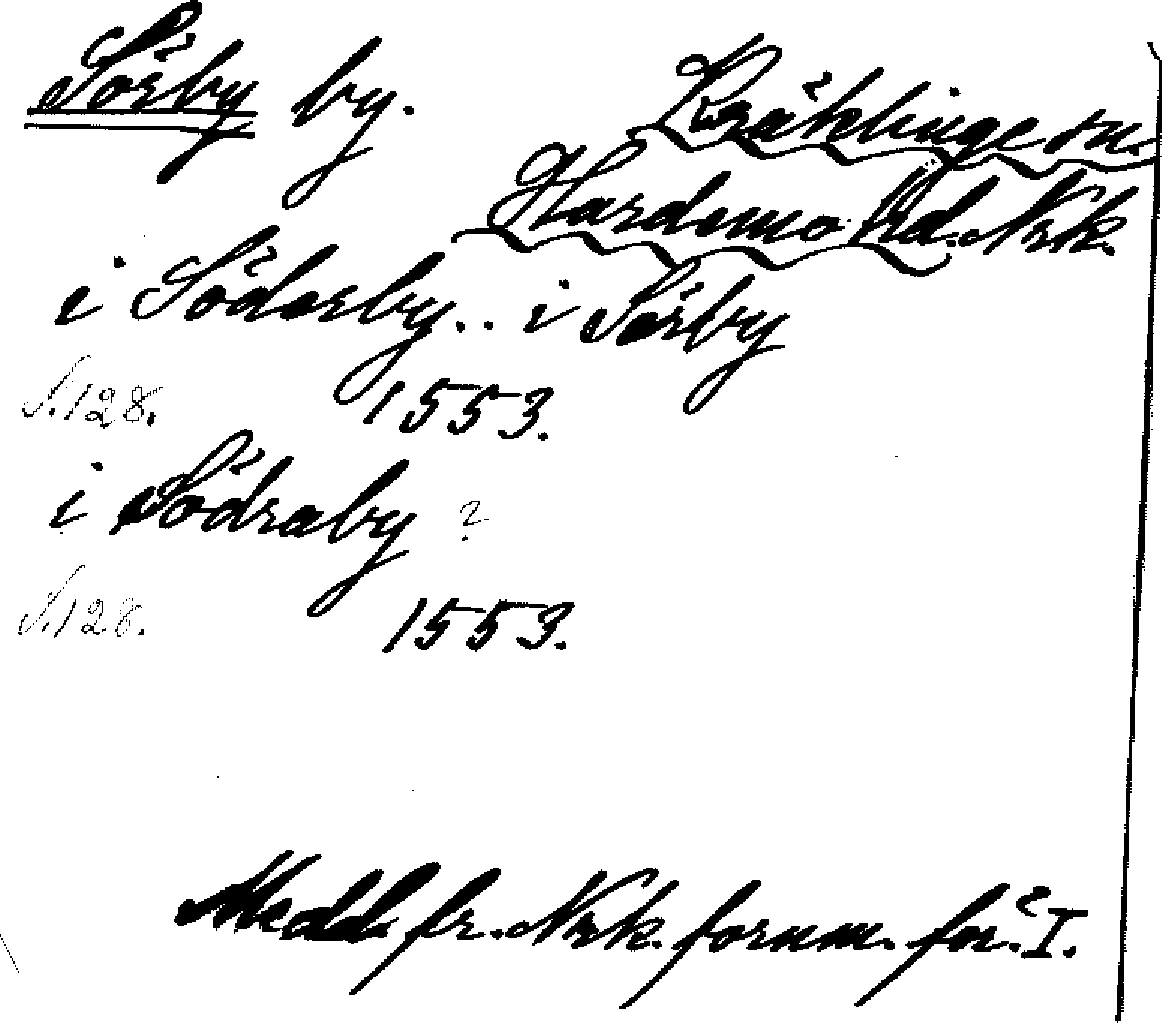 Sörby by.
Kräklinge sn.
Hardemo hd. Nrk.
i Söderby.. i Sörby
S. 128. 1553.
i Södraby ?
S. 128. 1553.
Medd. fr. Nrk. fornm. för. I.